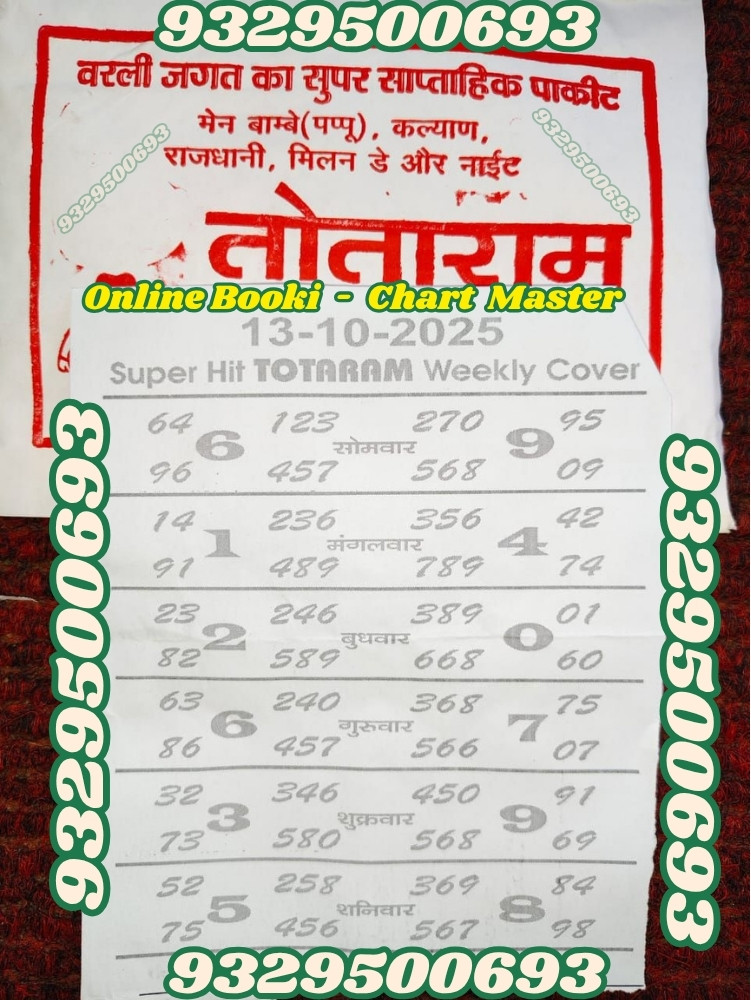 9329500693
वरली जगत का सुपर साप्ताहिक पाकीट
मेन बाम्बे(पप्पू), कल्याण,
राजधानी, मिलन डे और नाईट
9329500693
9329500693
तोताराम
Online Booki - Chart Master
13-10-2025
Super Hit TOTARAM Weekly Cover
64 123 270 95
6 सोमवार 9
96 457 568 09
14 236 356 42
1 मंगलवार 4
91 489 789 74
23 246 389 01
2 बुधवार 0
82 589 668 60
63 240 368 75
6 गुरुवार 7
86 457 566 07
32 346 450 91
3 शुक्रवार 9
73 580 568 69
52 258 369 84
5 शनिवार 8
75 456 567 98
9329500693
9329500693
9329500693